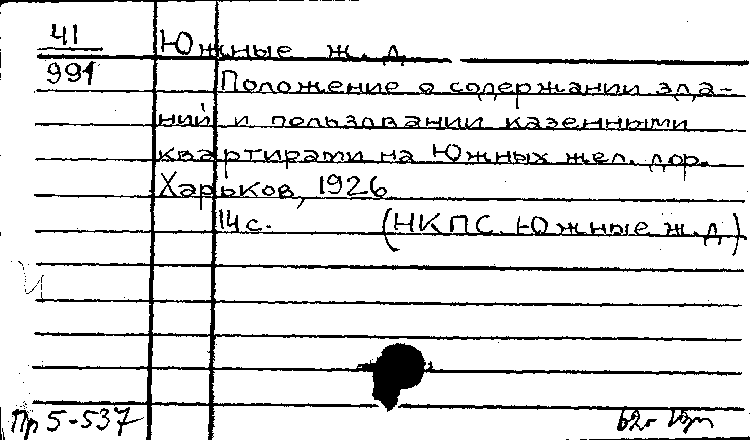 41
991
Южные ж. д
Положение о содержании зда-
ний и пользовании казенными
квартирами на Южных жел. дор.
Харьков, 1926
14 с. (НКПС. Южные ж.д)
Пр 5-537